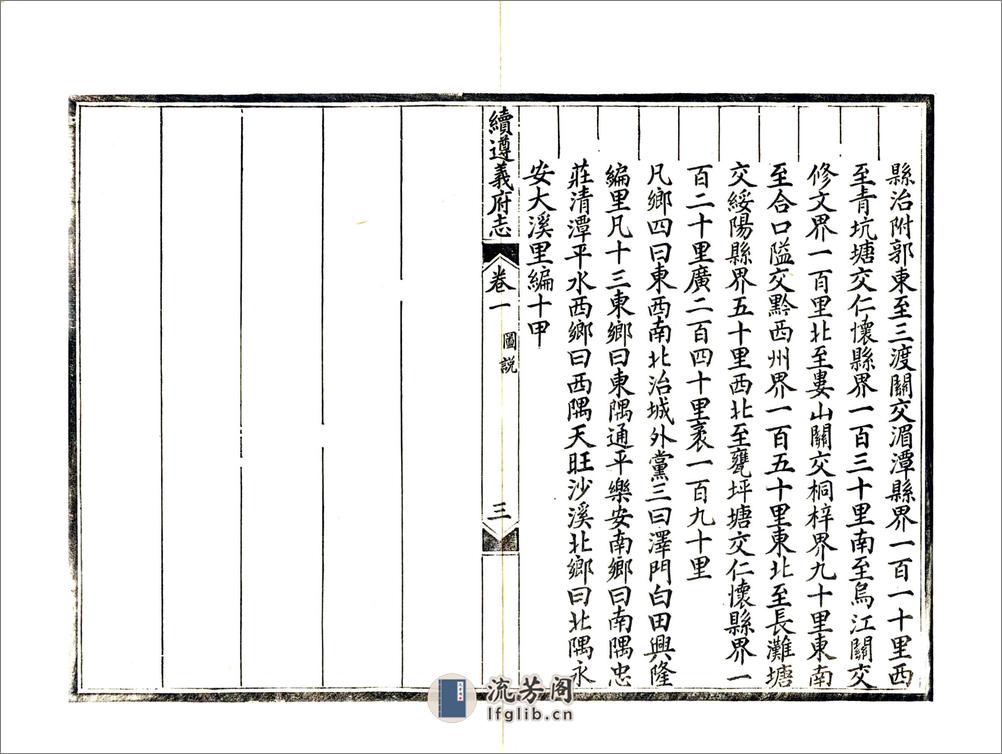 縣治附郭東至三渡關交湄潭縣界一百一十里西
至青坑塘交仁懷縣界一百三十里南至烏江關交
修文界一百里北至婁山關交桐梓界九十里東南
至合口隘交黔西州界一百五十里東北至長灘塘
交綏陽縣界五十里西北至甕坪塘交仁懷縣界一
百二十里廣二百四十里袤一百九十里
凡鄉四曰東西南北治城外黨三曰澤門白田興隆
編里凡十三東鄉曰東隅通平樂安南鄉曰南隅忠
莊清潭平水西鄉曰西隅天旺沙溪北鄉曰北隅永
安大溪里編十甲
續遵義府志
卷一
圖說
三
流芳阁
lfglib.cn